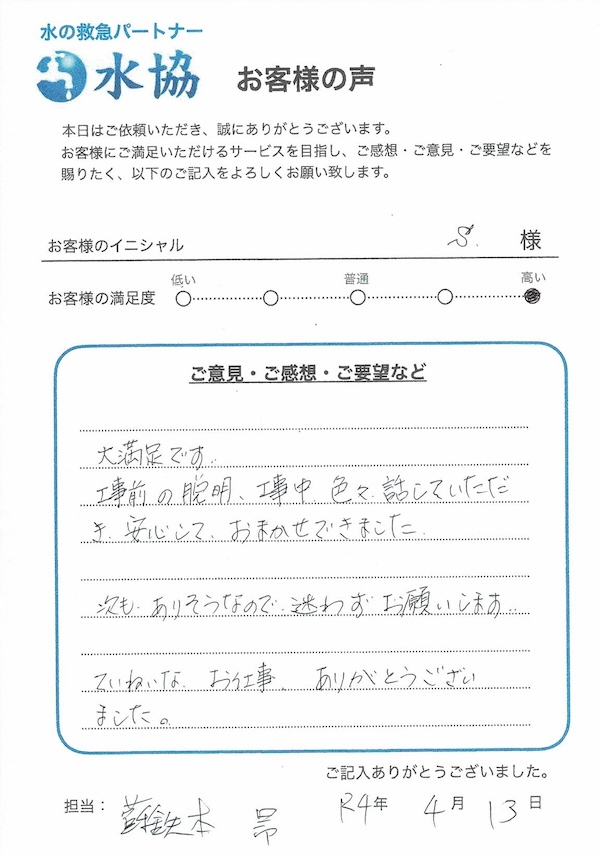 水の救急パートナー
水協 お客様の声
本日はご依頼いただき、誠にありがとうございます。
お客様にご満足いただけるサービスを目指し、ご感想・ご意見・ご要望などを
賜りたく、以下のご記入をよろしくお願い致します。
お客様のイニシャル S. 様
低い 普通 高い
お客様の満足度
ご意見・ご感想・ご要望など
大満足です.
工事前の説明、工事中 色々 話していただ
き、安心して、おまかせできました.
次も.ありそうなので.迷わず お願いします.
ていねいな お仕事、ありがとうござい
ました。
ご記入ありがとうございました。
担当： 本 昂 R4年 4月 13日